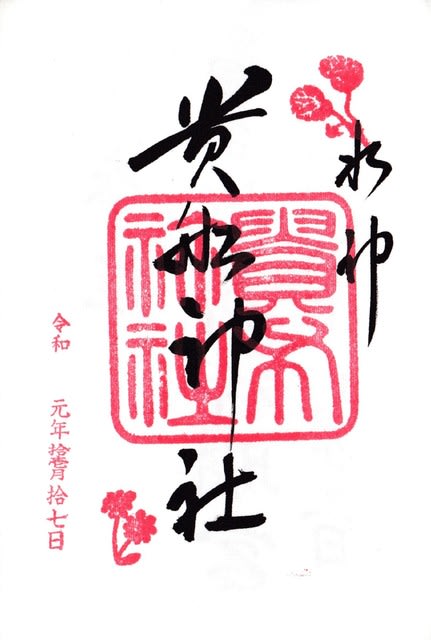 水神
貴船神社
貴
神社
令和 元年拾壹月拾七日